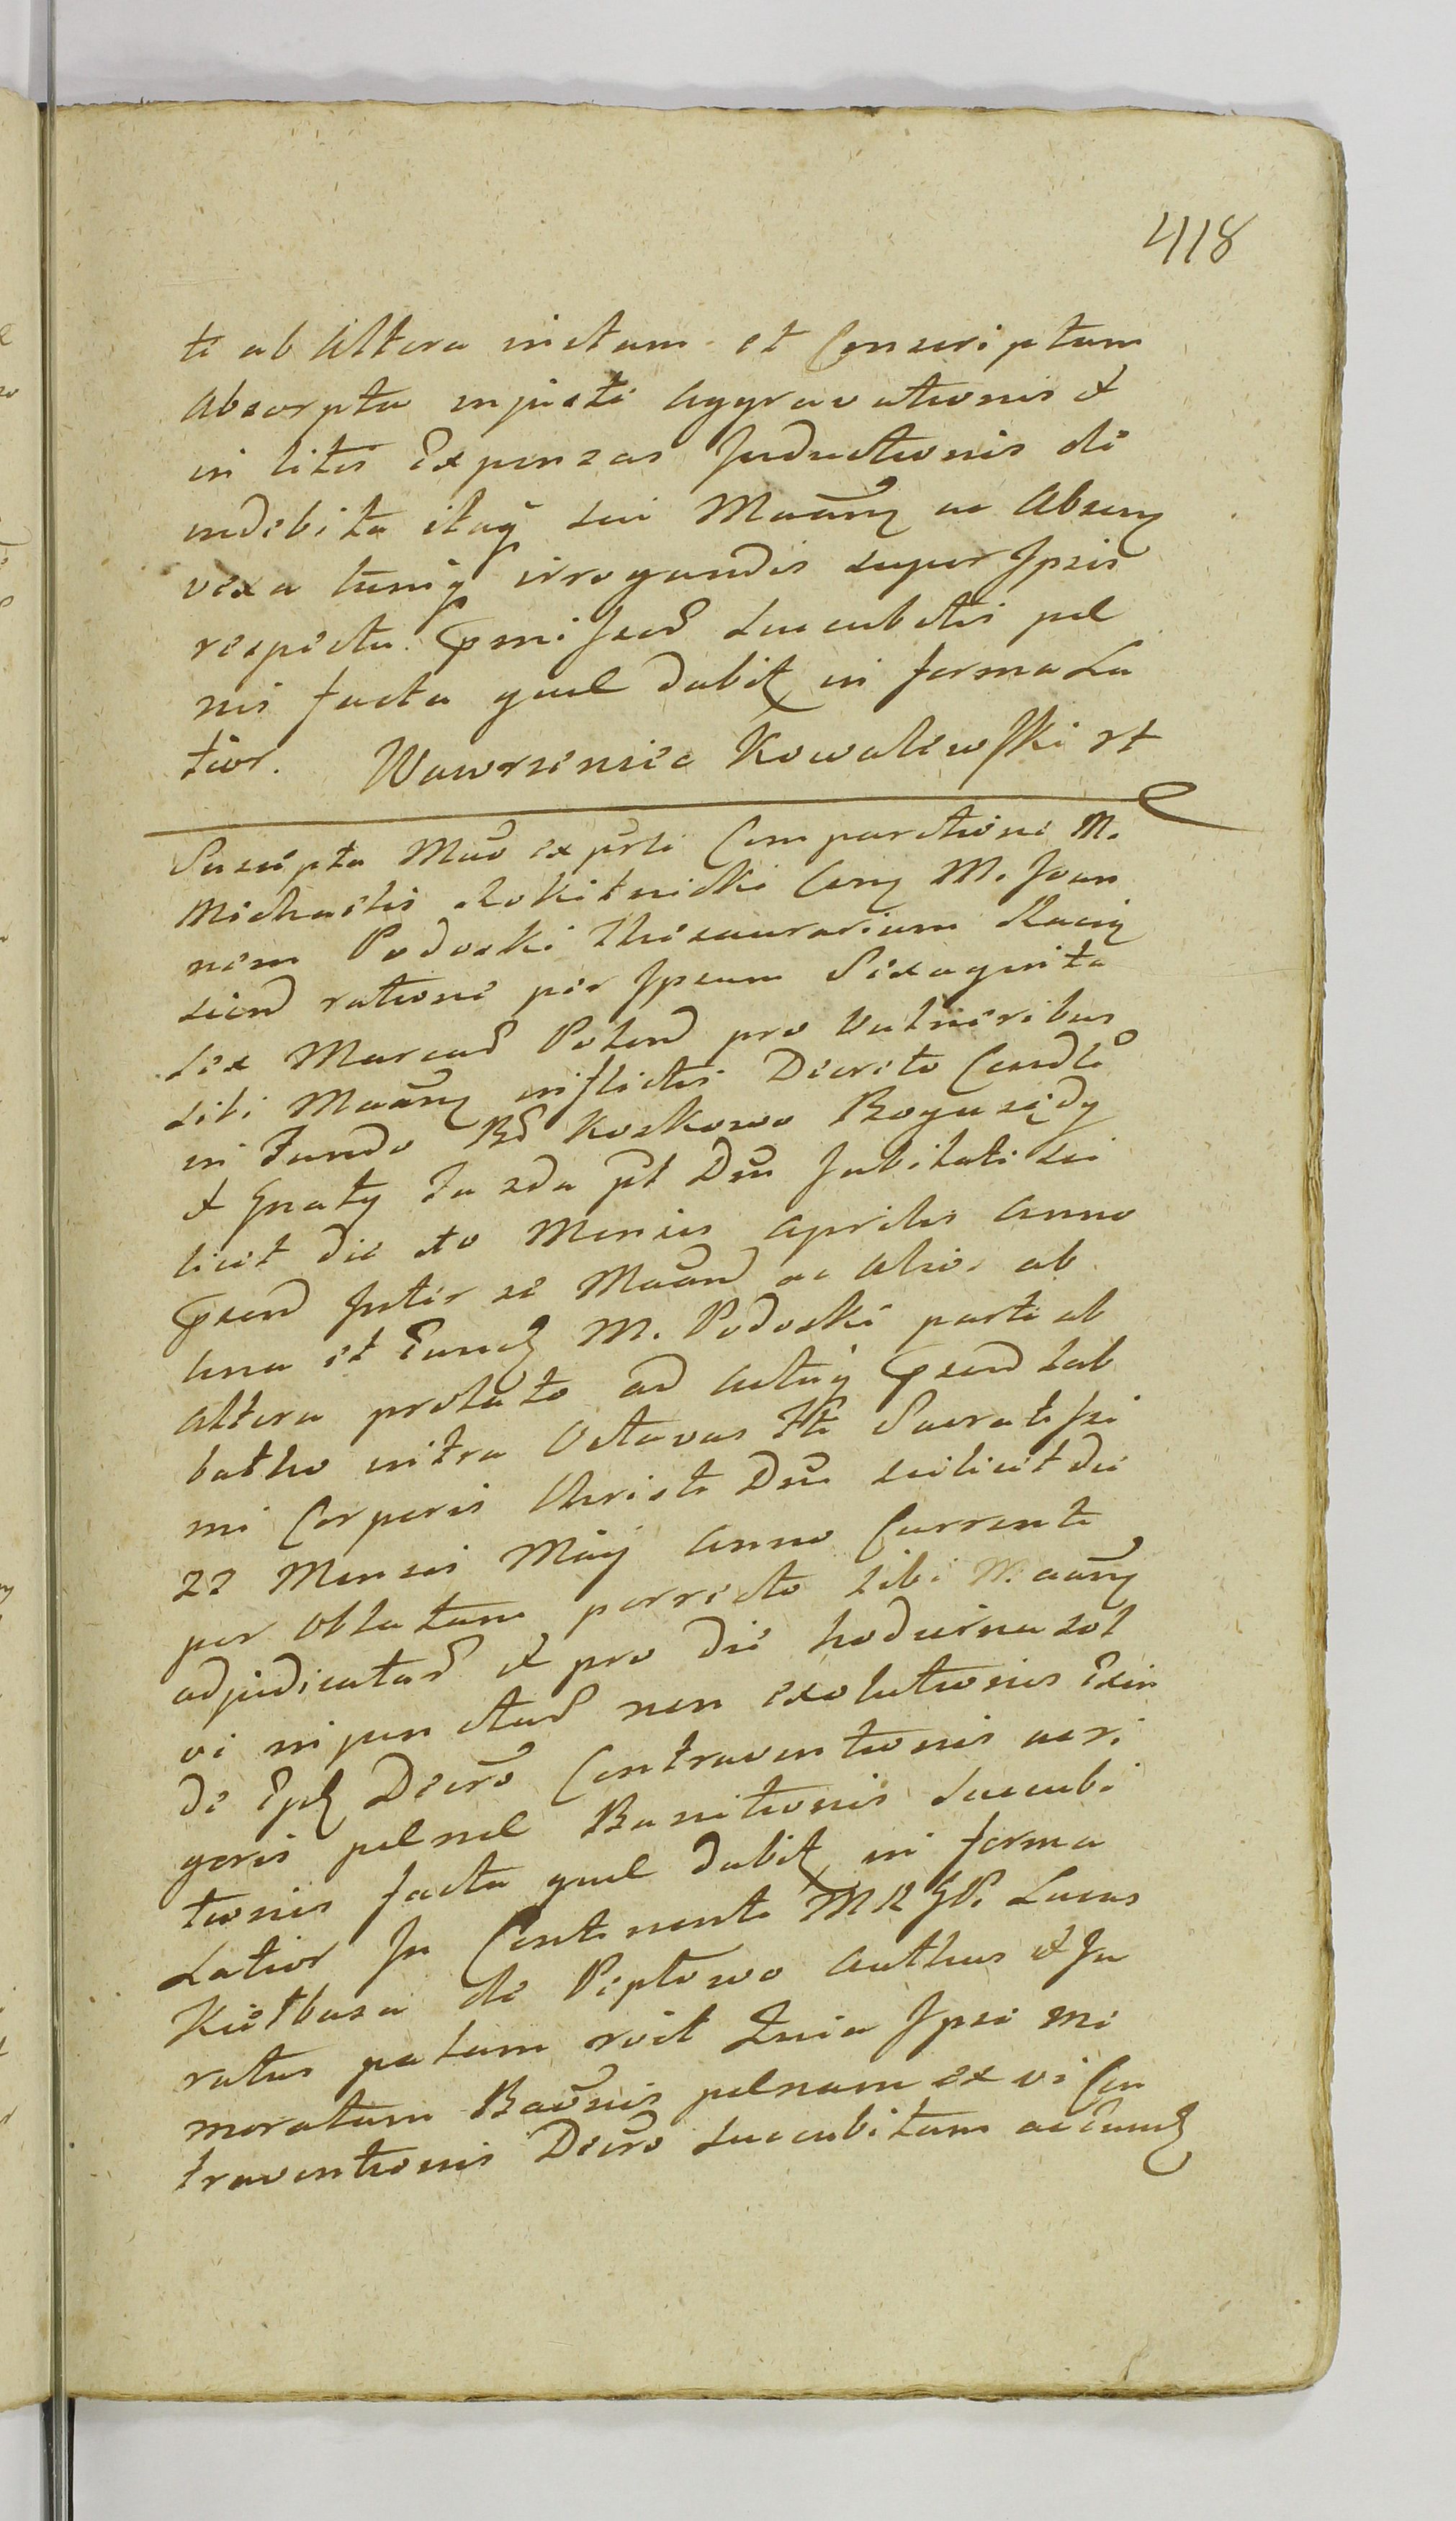 418
te ab Altera inctam et Conscriptam
Absorpta injusti Aggravationis et
in litis Expensas Inductionis de
indebita itaq sui Maānz ac Absenz
vexa tuniq irrogandis super Ipsis
respectu pmissoR Succubitis pæl
nis facta quæ dabiť in forma La
tior. Wawrzeniec Kowalewski rt
Suscepta Māo ex pūrti Comparitione M.
Michaelis Rokitnicki Conz M. Joan
nem Podoski Thesaurarium Raciąz
sien ratione per Ipsum Sexaginta
sex MarcaR Polon pro Vulneribus
sibi Maānz inflictis Decreto Condlō
in Fundo BR Koskowo Boguseidy
et Gnaty Fa zda pt Dnī Jubilate sci
licet die sto Mensis Aprilis Anno
psen Inter se Maān ac Alios ab
una et Eundz M. Podoski parte ab
altera prolato ad Actaq psen Sab
batho intra Octavas Fti Sacratissi
mi Corporis Christi Dnī scilicet die
22 Mensis Maij Anno Currente
per Oblatam porrecto sibi Maānz
adjudicataR et pro die hodierna sol
vi injunctaR non exolutionis Exin
de Epz Decrō Contraventionis acri
goris pælnæ Banitionis Succubi
tionis facta quæ dabiť in forma
Latior In Continenti MR GR. Lucas
Kiełbasa de Peptowo Authus et Ju
ratus palam rvit Quia Ipse me
moratam Baōnis pælnam ex vi Con
traventionis Decrō succubitam ac Eundz